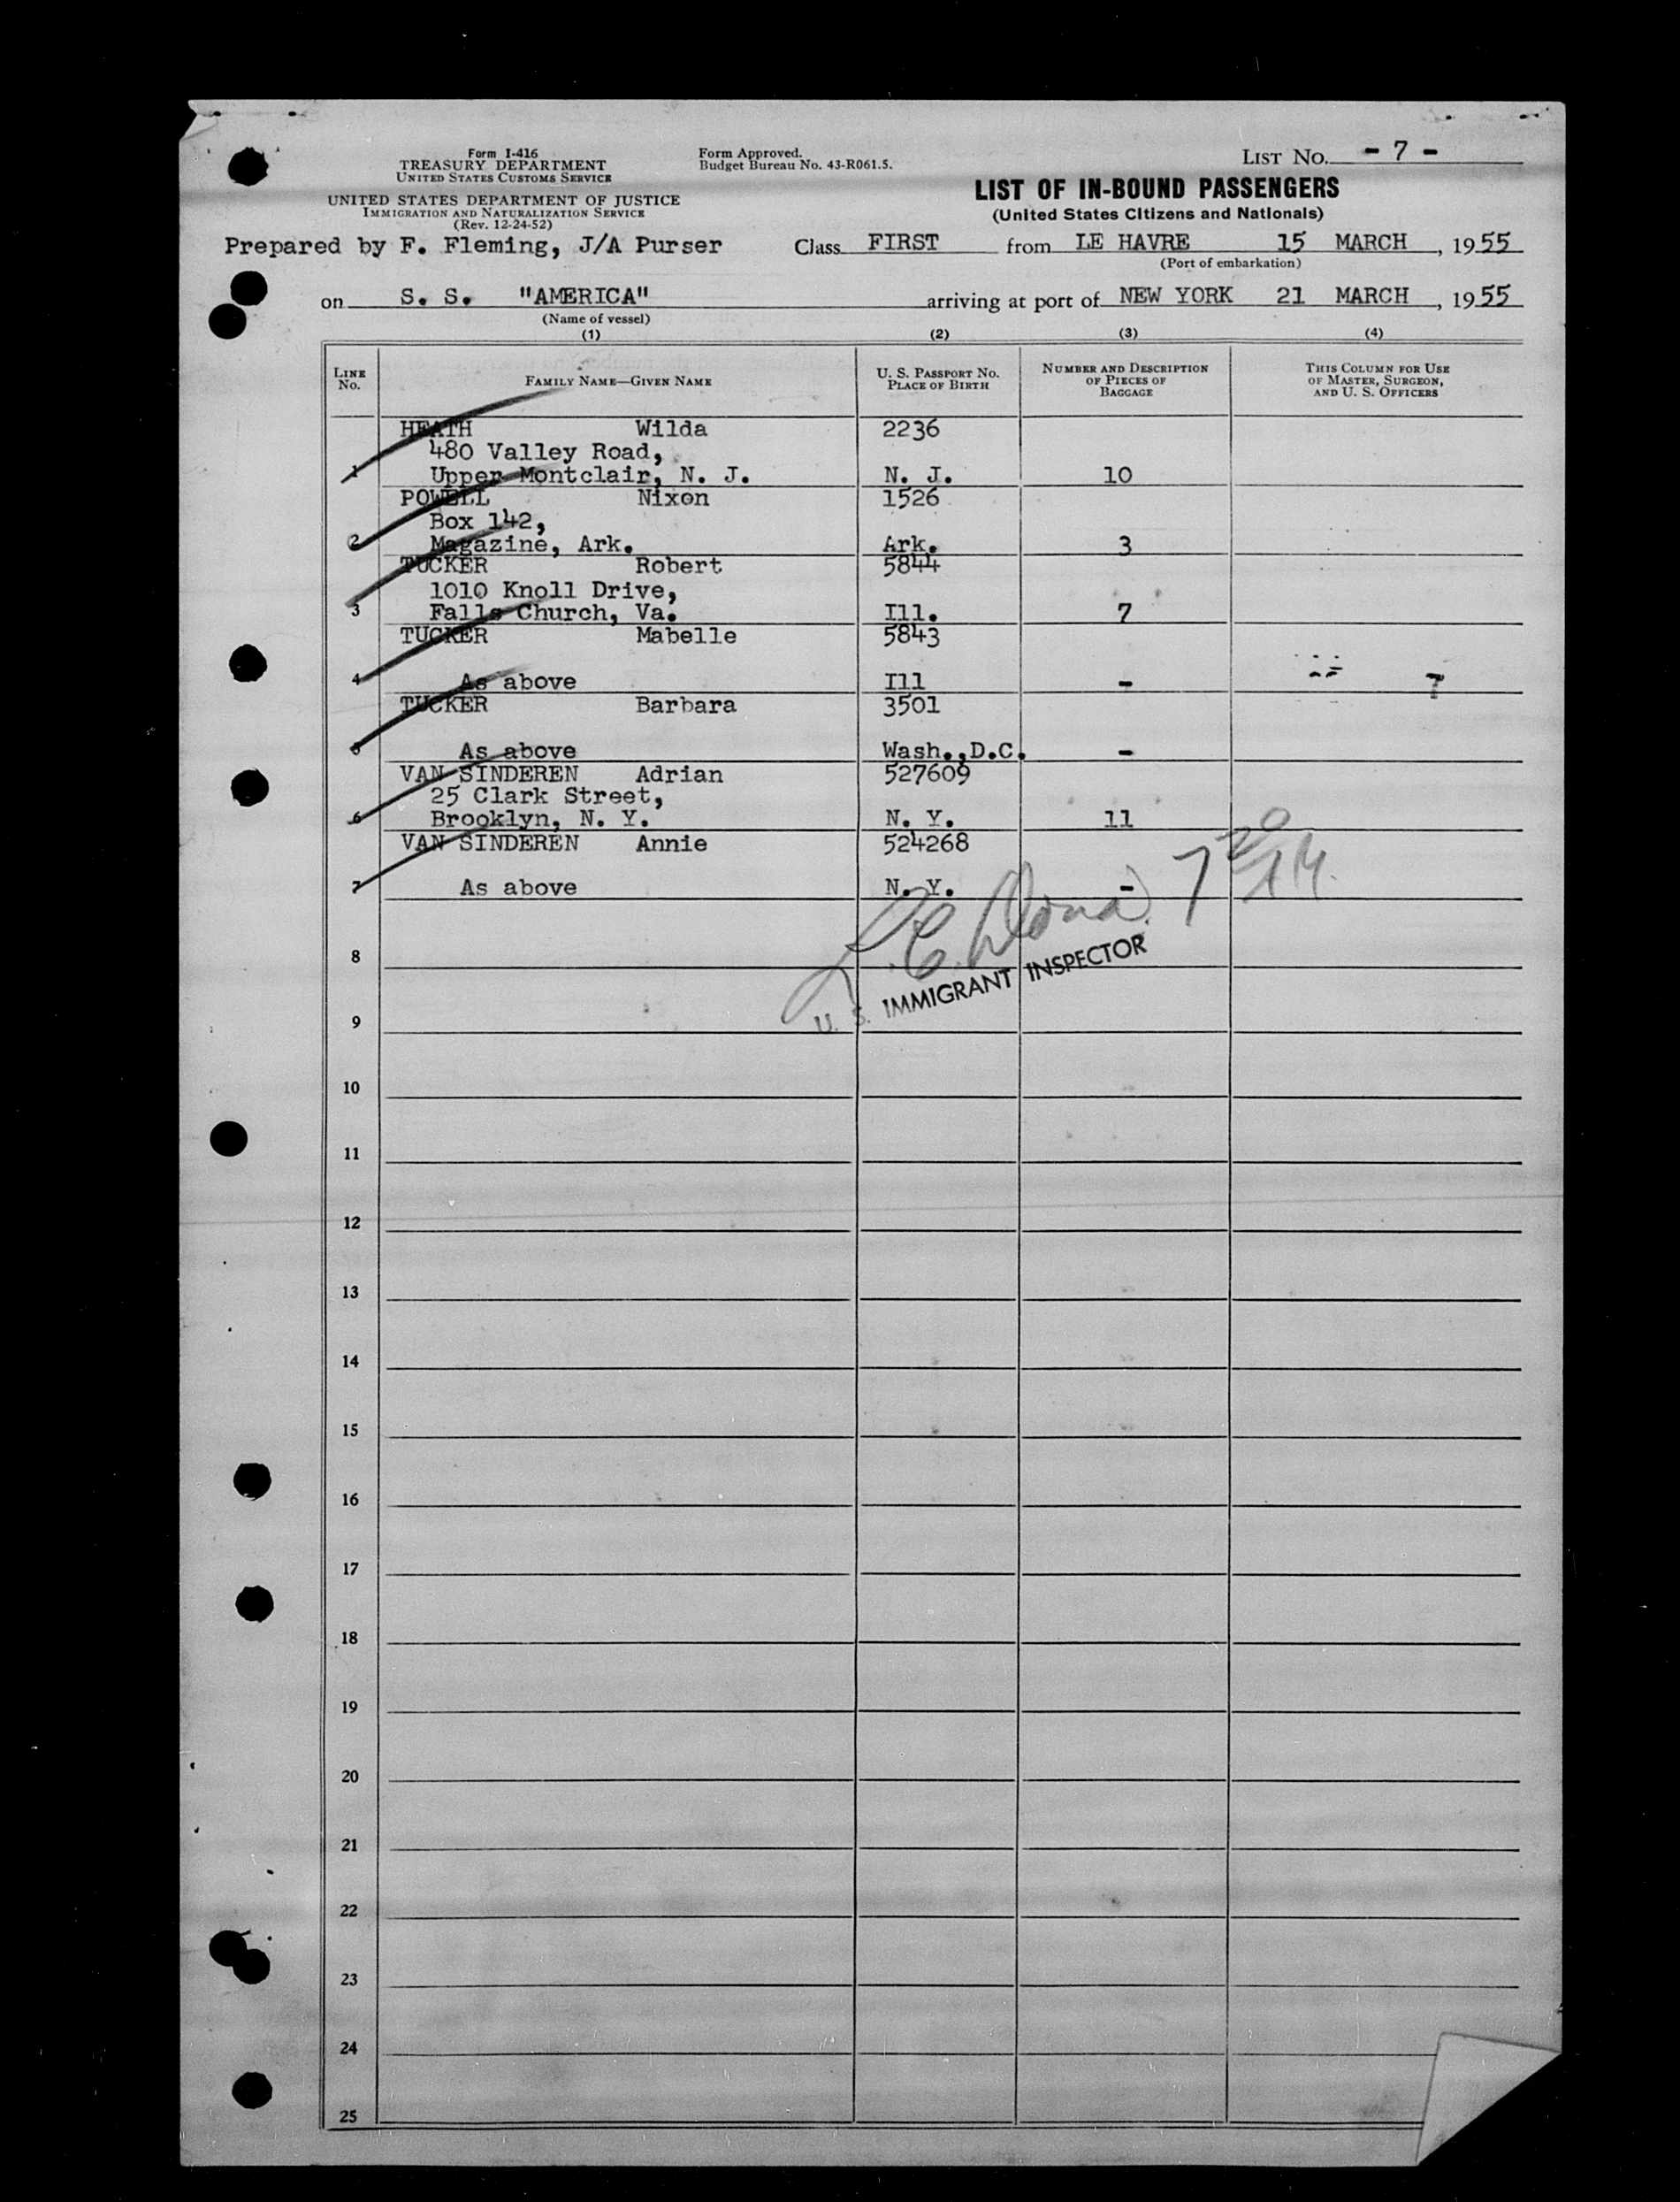 Form I-416
TREASURY DEPARTMENT
UNITED STATES CUSTOMS SERVICE
UNITED STATES DEPARTMENT OF JUSTICE
IMMIGRATION AND NATURALIZATION SERVICE
(Rev. 12-24-52)
Form Approved.
Budget Bureau No. 43-R061.5.
LIST No. - 7 -
LIST OF IN-BOUND PASSENGERS
(United States Citizens and Nationals)
Prepared by F. Fleming, J/A Purser Class FIRST from LE HAVRE 15 MARCH, 1955
(Port of embarkation)
on S. S. "AMERICA" arriving at port of NEW YORK 21 MARCH, 1955
(Name of vessel)
(1) (2) (3) (4)
LINE No. FAMILY NAME—GIVEN NAME U. S. PASSPORT NO. PLACE OF BIRTH NUMBER AND DESCRIPTION OF PIECES OF BAGGAGE THIS COLUMN FOR USE OF MASTER, SURGEON, AND U. S. OFFICERS
HEATH Wilda 2236
480 Valley Road,
1 Upper Montclair, N. J. N. J. 10
POWELL Nixon 1526
Box 142,
2 Magazine, Ark. Ark. 3
TUCKER Robert 5844
1010 Knoll Drive,
3 Falls Church, Va. Ill. 7
TUCKER Mabelle 5843
4 As above Ill - 7
TUCKER Barbara 3501
5 As above Wash.,D.C. -
VAN SINDEREN Adrian 527609
25 Clark Street,
6 Brooklyn, N. Y. N. Y. 11
VAN SINDEREN Annie 524268
7 As above N. Y. -
U. S. IMMIGRANT INSPECTOR
8
9
10
11
12
13
14
15
16
17
18
19
20
21
22
23
24
25